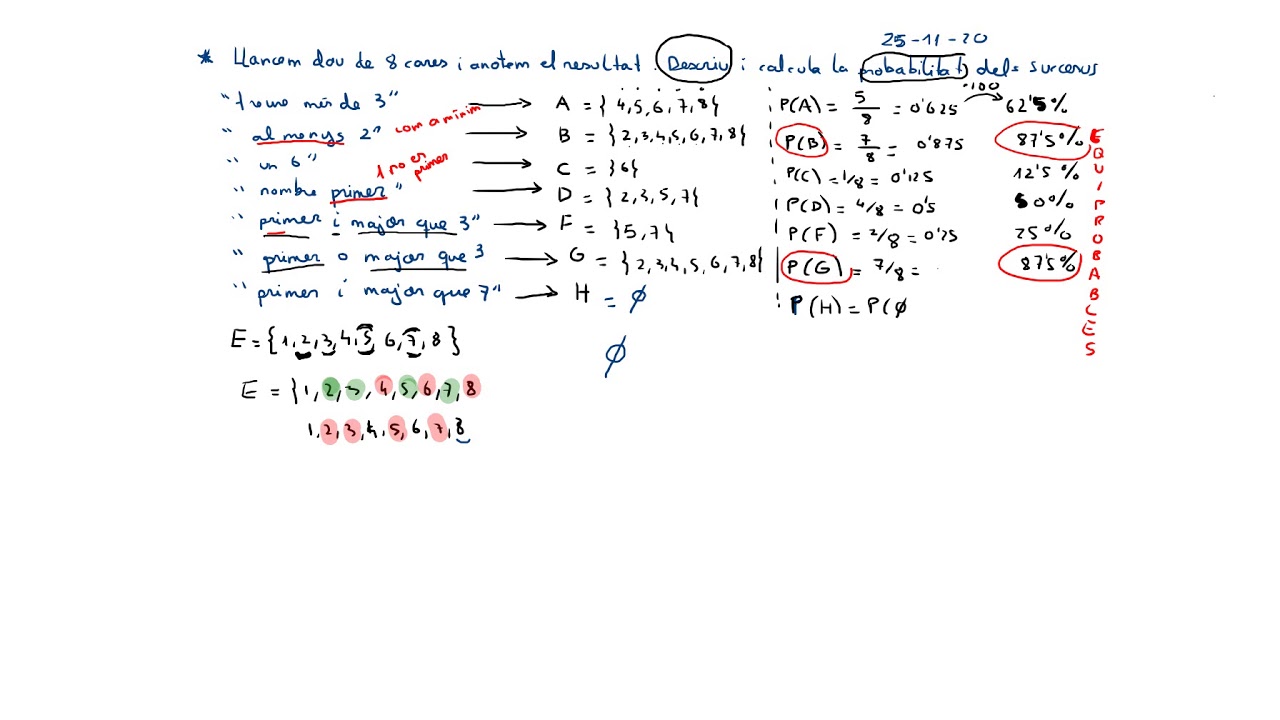 25-11-20
* Llancem dau de 8 cares i anotem el resultat. Descriu i calcula la probabilitat dels successos
"treure més de 3" → A = { 4,5,6,7,8} P(A) = 5/8 = 0'625 ·100 62'5%
"al menys 2" com a mínim → B = {2,3,4,5,6,7,8} P(B) = 7/8 = 0'875 87'5%
"un 6" → C = {6} P(C) = 1/8 = 0'125 12'5%
1 no és primer
"nombre primer" → D = {2,3,5,7} P(D) = 4/8 = 0'5 50%
"primer i major que 3" → F = {5,7} P(F) = 2/8 = 0'25 25%
"primer o major que 3 → G = {2,3,4,5,6,7,8} P(G) = 7/8 = 87'5%
"primer i major que 7" → H = ∅ P(H) = P(∅
EQUIPROBABLES
E = {1,2,3,4,5,6,7,8}
∅
E = {1,2,3,4,5,6,7,8
1,2,3,4,5,6,7,8